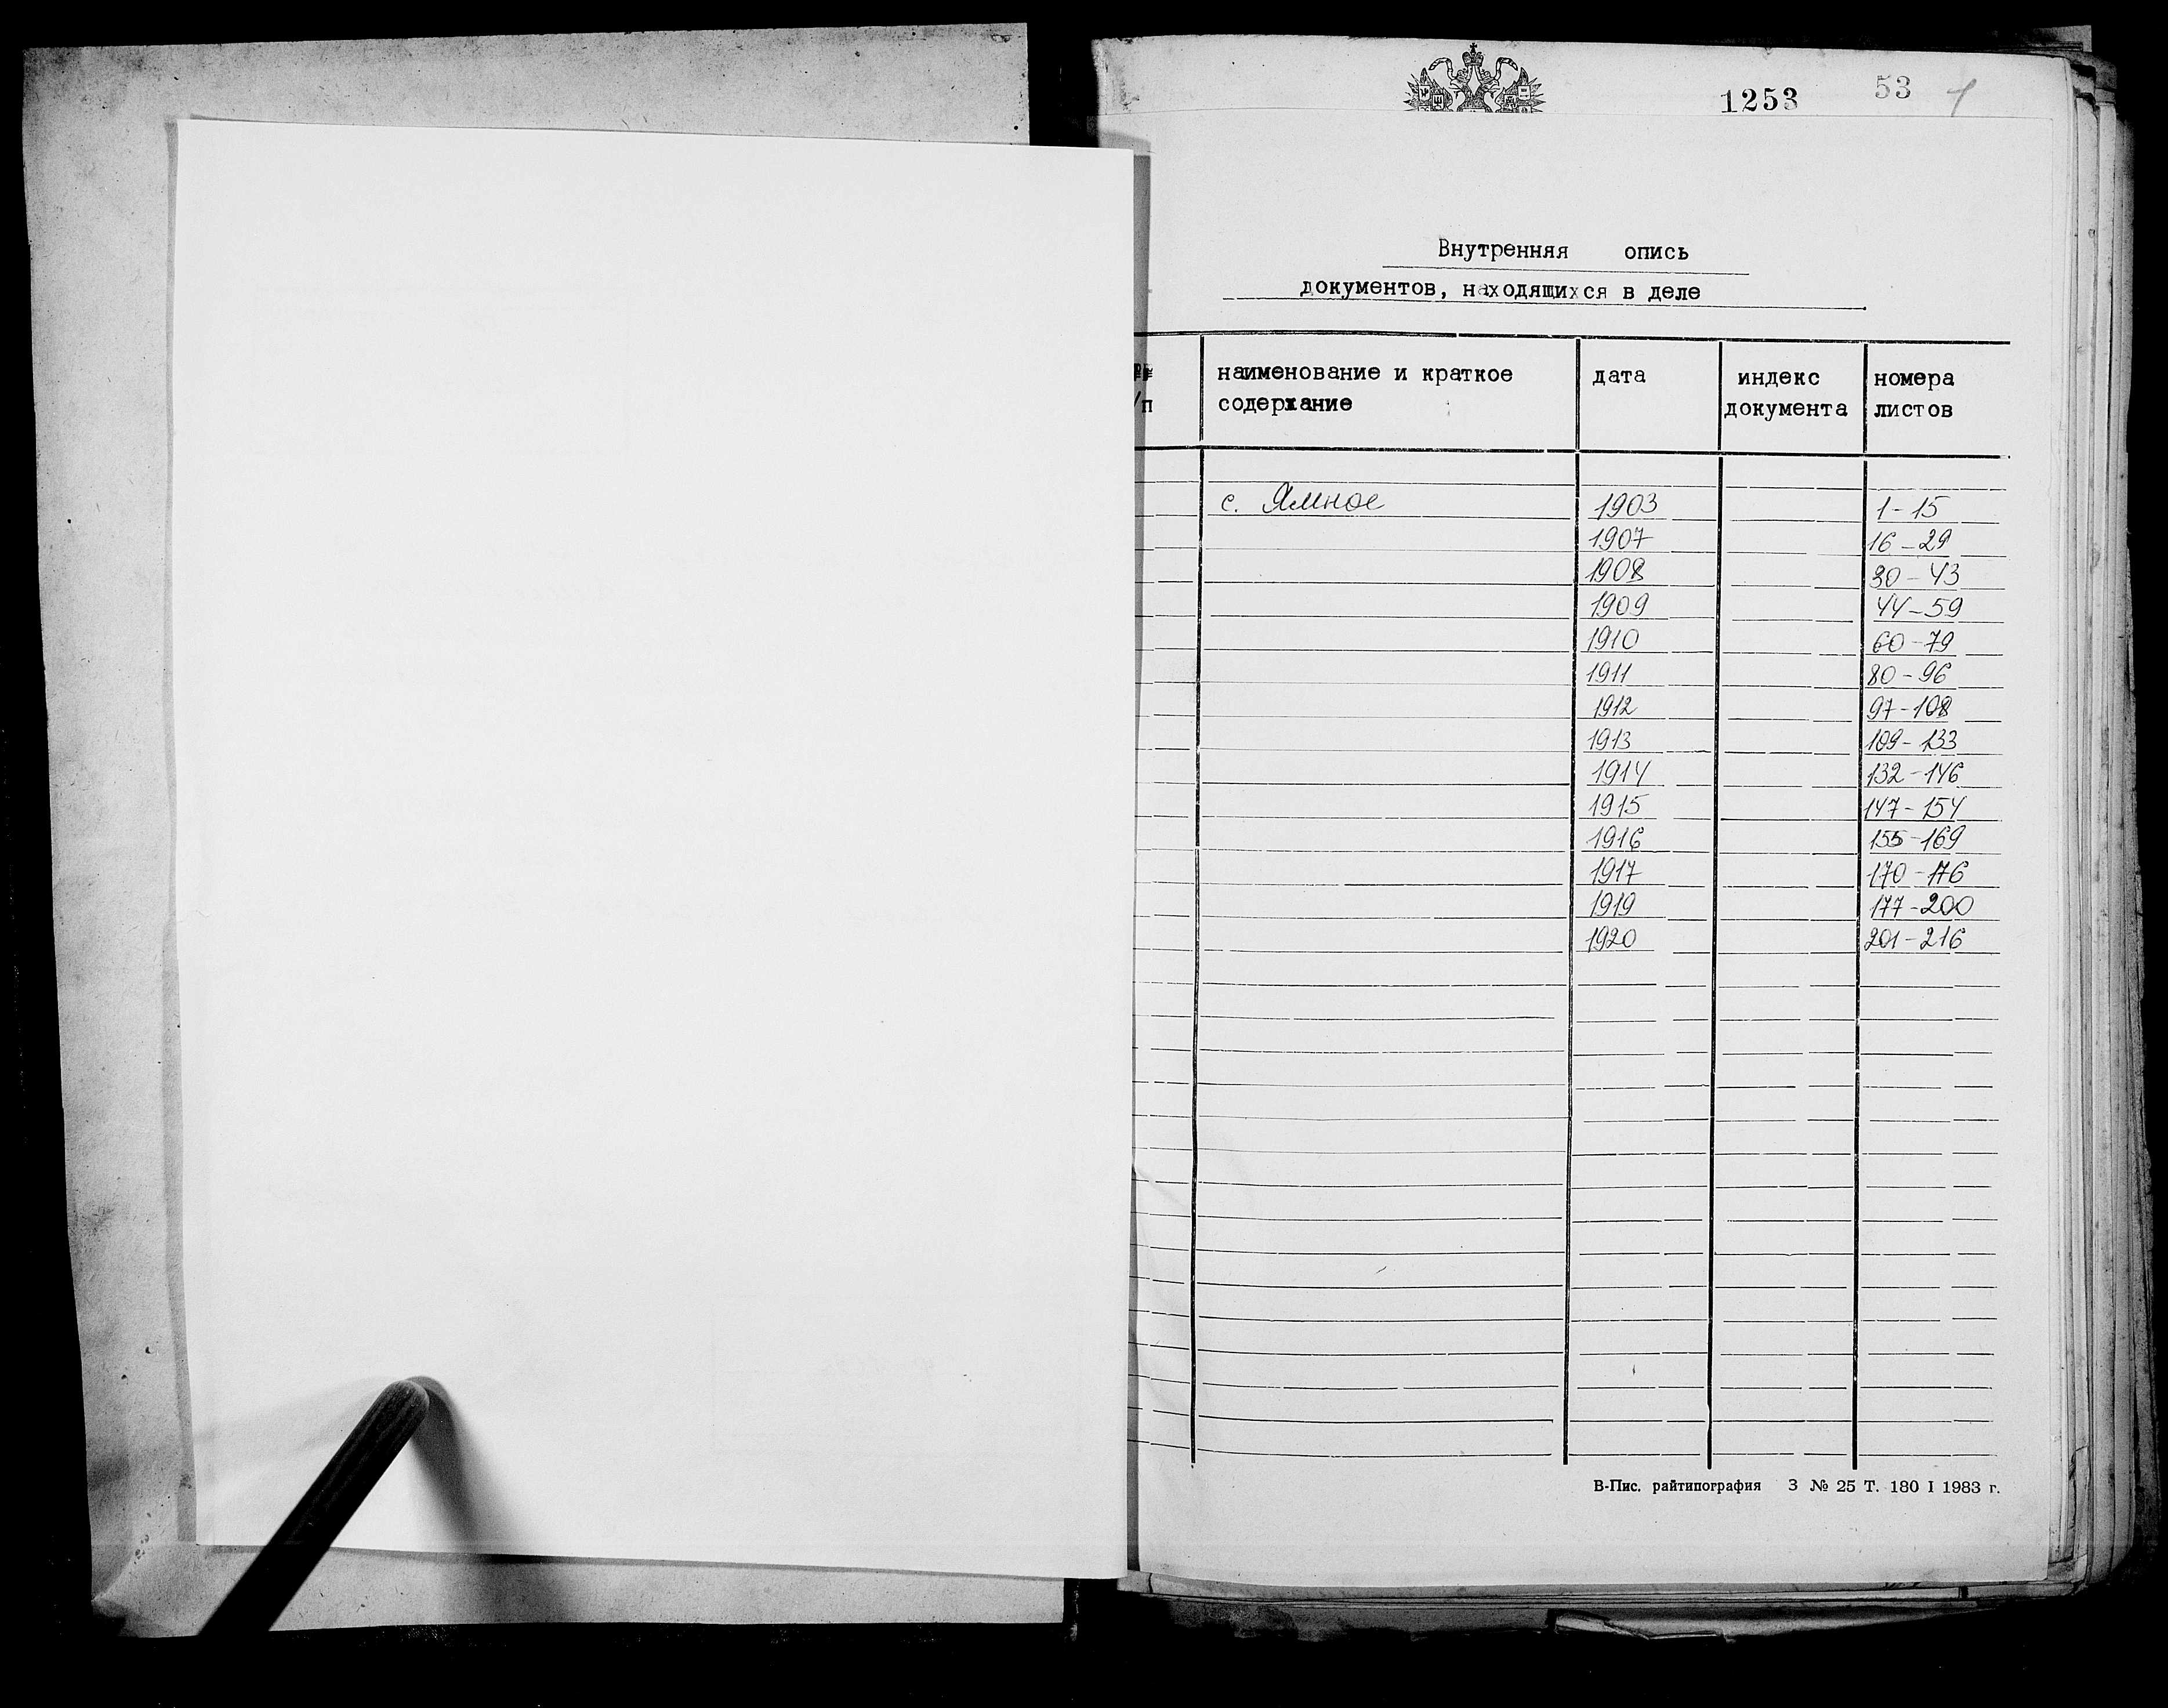 1253 53 1
Внутренняя опись
документов, находящихся в деле
№№ наименование и краткое дата индекс номера
/п содержание документа листов
с. Ямное 1903 1-15
1907 16-29
1908 30-43
1909 44-59
1910 60-79
1911 80-96
1912 97-108
1913 109-133
1914 132-146
1915 147-154
1916 155-169
1917 170-176
1919 177-200
1920 201-216
В-Пис. райтипография З № 25 Т. 180 I 1983 г.